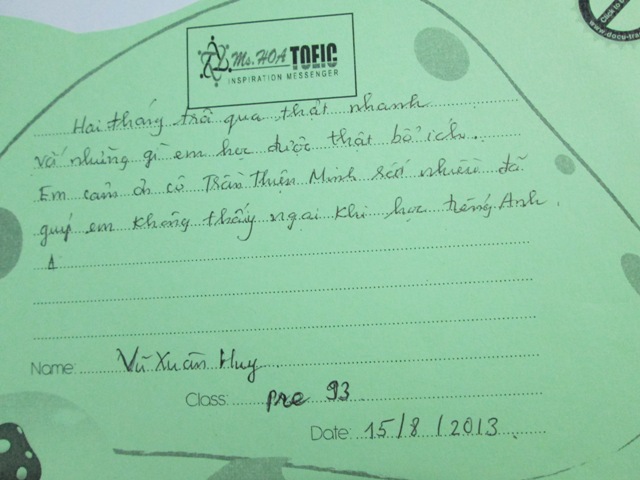 Ms. HOA TOEIC
INSPIRATION MESSENGER
Hai tháng trôi qua thật nhanh
và những gì em học được thật bổ ích.
Em cảm ơn cô Trần Thiện Minh rất nhiều đã
giúp em không thấy ngại khi học tiếng Anh.
Name: Vũ Xuân Huy
Class: pre 93
Date: 15/8/2013
www.docu-tra